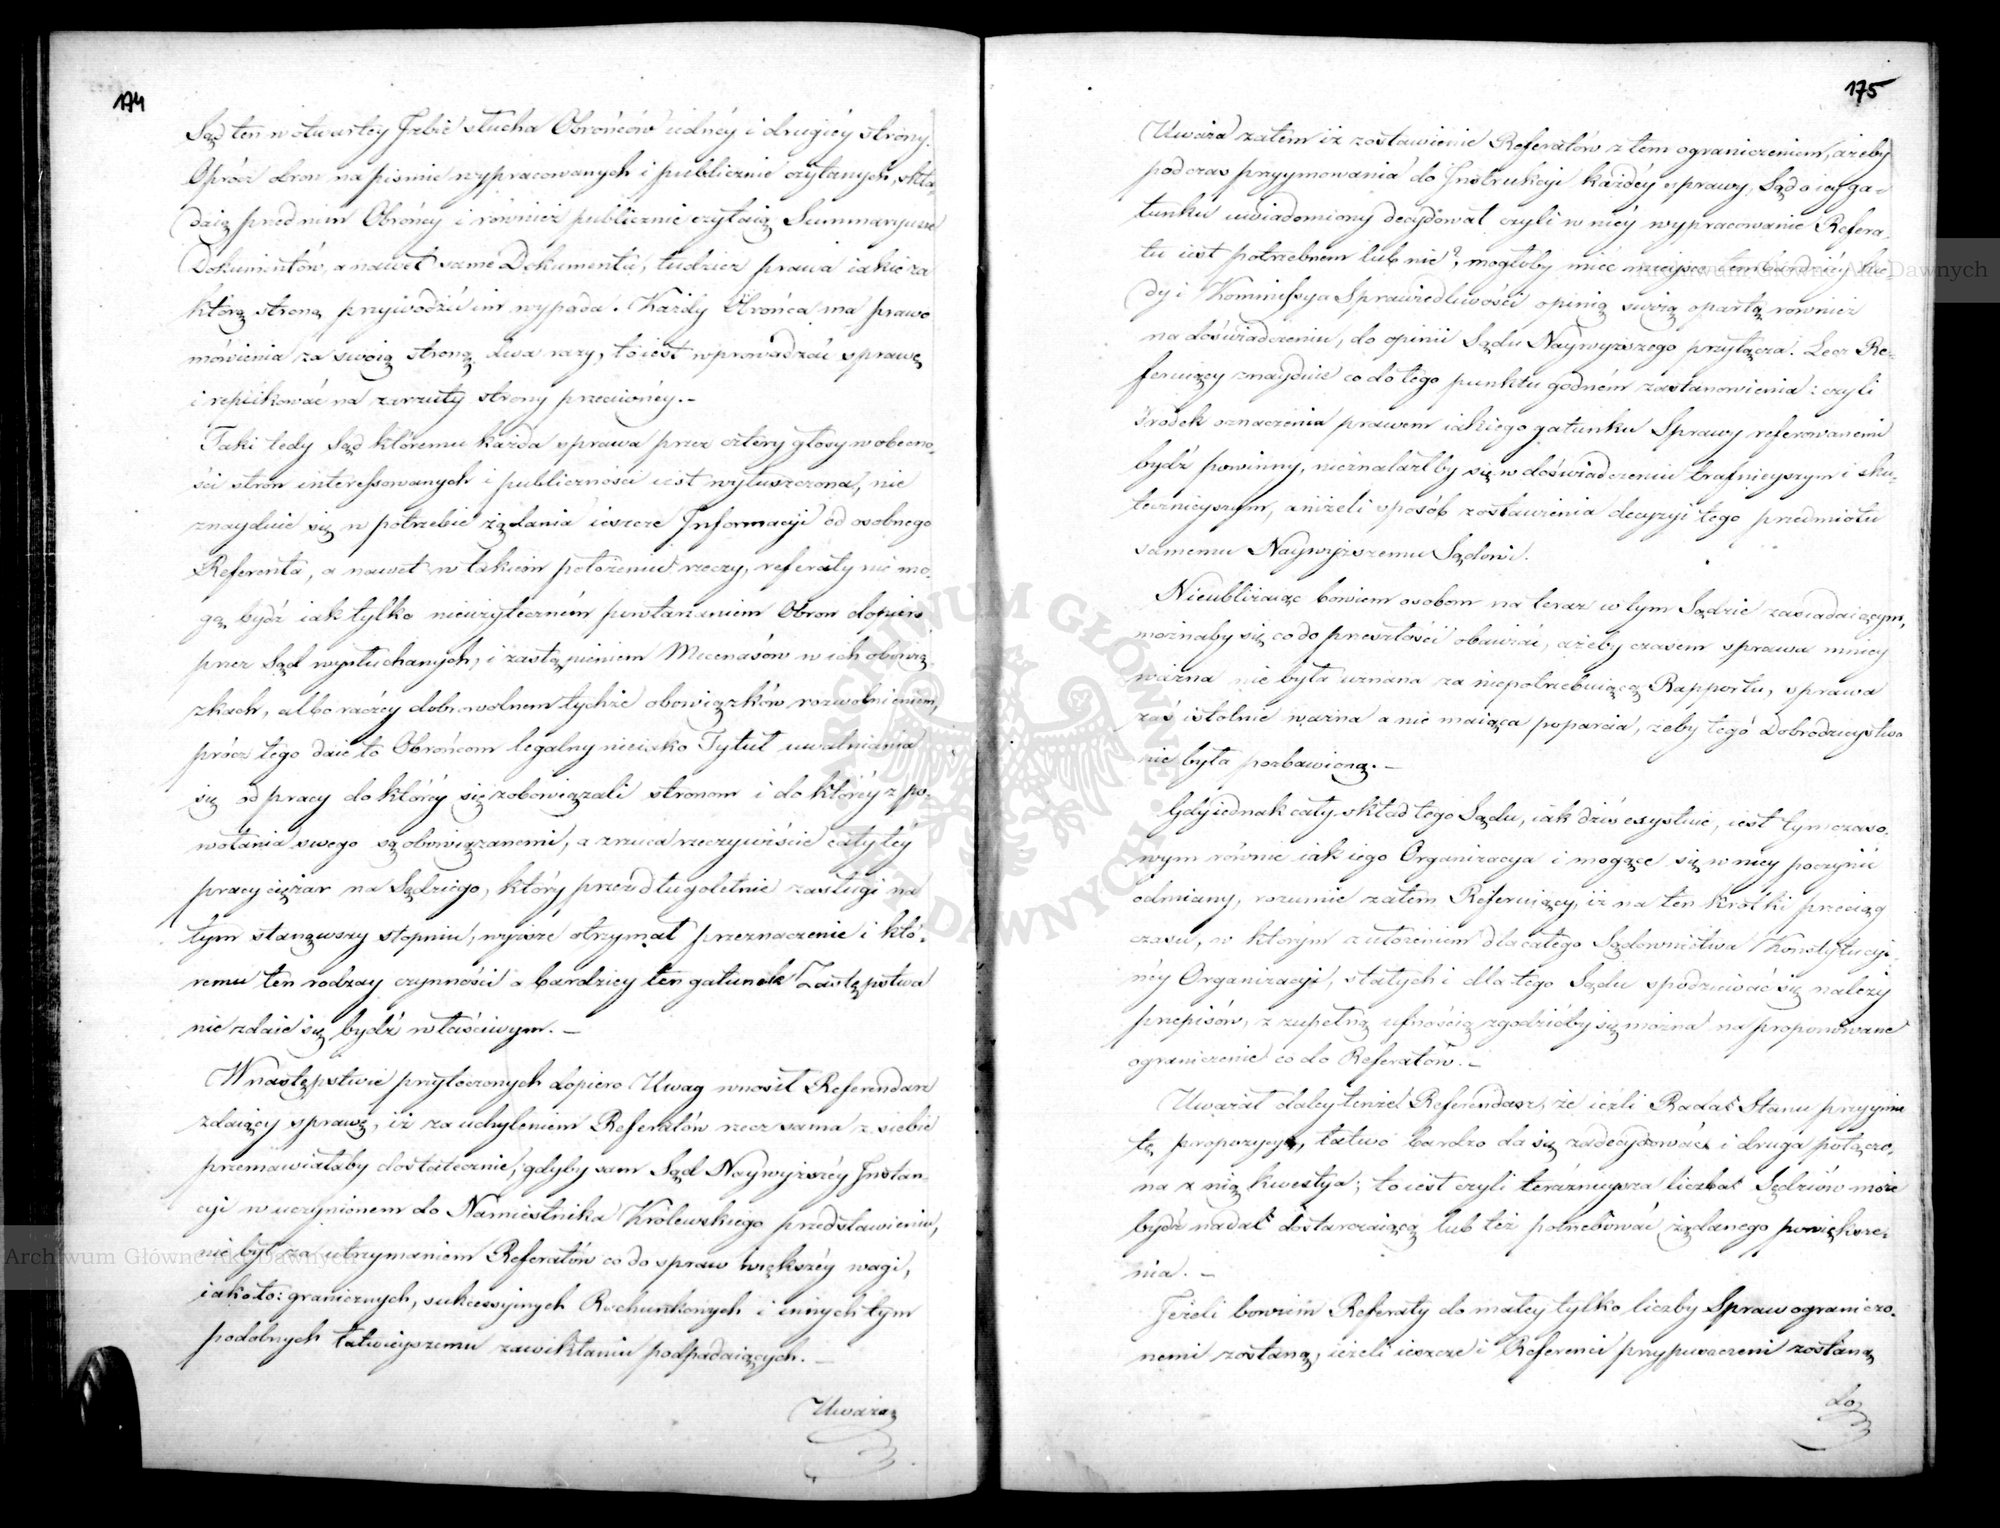 174
Sąd ten w otwartey Jzbie słucha Obrońców iednéy i drugiéy strony.
Oprócz obron na piśmie wypracowanych i publicznie czytanych, skła-
daią przed nim Obrońcy i również publicznie czytaią Summaryusze
Dokumentów, a nawet same Dokumenta, tudzież prawa iakie za
którą stroną przywodzić im wypada. Każdy Obrońca ma prawo
mówienia za swoią stroną dwa razy, to iest wprowadzać sprawę
i replikować na zarzuty strony przeciwnéy. –
Taki tedy Sąd któremu każda sprawa przez cztery głosy w obecno-
ści stron interessowanych i publiczności iest wyłuszczona, nie
znayduie się w potrzebie żądania ieszcze Jnformacyi od osobnego
Referenta, a nawet w takiem położeniu rzeczy, referaty nie mo-
gą bydź iak tylko nieużyteczném powtarzaniem Obron dopiero
przez Sąd wysłuchanych, i zastąpieniem Mecenasów w ich obowią-
zkach, albo raczéy dobrowolnem tychże obowiązków rozwolnieniem,
prócz tego daie to Obrońcom legalny nieiako Tytuł uwalniania
się od pracy do któréy się zobowiązali stronom i do któréy z po-
wołania swego są obowiązanemi, a zrzuca rzeczywiście całytéy
pracy ciężar na Sędziego, który przez długoletnie zasługi na
tym stanąwszy stopniu, wyższe otrzymał przeznaczenie i któ-
remu ten rodzay czynności a bardziey ten gatunek Zastępstwa
nie zdaie się bydź właściwym. –
W następstwie przytoczonych dopiero Uwag wnosił Referendarz
zdaiący sprawę, iż za uchyleniem Referatów rzecz sama z siebie
przemawiałaby dostatecznie, gdyby sam Sąd Naywyższéy Jnstan-
cyi w uczynionem do Namiestnika Królewskiego przedstawieniu,
nie był za utrzymaniem Referatów co do spraw większéy wagi,
iako to: granicznych, sukcessyinych Rachunkowych i innych tym
podobnych łatwieyszemu zawikłaniu podpadaiących. –
Uważa
175
Uważa zatem iż zostawienie Referatów z tem ograniczeniem, ażeby
podczas przyymowania do Jnstrukcyi każdéy sprawy, Sąd o iey ga-
tunku uwiadomiony decydował czyli w niéy wypracowanie Refera-
tu iest potrzebnem lub nie?, mogłoby mieć mieysce tembardziéy kie-
dy i Kommissya Sprawiedliwości opinią swoią opartą również
na doświadczeniu, do opinii Sądu Naywyższego przyłącza. Lecz Re-
feruiący znayduie co do tego punktu godném zastanowienia: czyli
środek oznaczenia prawem iakiego gatunku Sprawy referowanemi
bydź powinny, nieznalazłby się w doświadczeniu trafnieyszym i sku-
tecznieyszym, aniżeli sposób zostawienia decyzyi tego przedmiotu
samemu Naywyższemu Sądowi.
Nieubliżaiąc bowiem osobom na teraz w tym Sądzie zasiadaiącym,
możnaby się co do przeszłości obawiać, ażeby czasem sprawa mniey
ważna nie była uznana za niepotrzebuiącą Rapportu, sprawa
zaś istotnie ważna a nie maiąca poparcia, żeby tego dobrodzieystwa
nie była pozbawioną. –
Gdy iednak cały skład tego Sądu, iak dziś exystuie, iest tymczaso-
wym równie iak iego Organizacya i mogące się w niey poczynić
odmiany, rozumie zatem Referuiący, iż na ten krótki przeciąg
czasu, w którym z ułożeniem dla całego Sądownictwa Konstytucyi-
néy Organizacyi, stałych i dla tego Sądu spodziewać się należy
przepisów, z zupełną ufnością zgodzićby się można na proponowane
ograniczenie co do Referatów. –
Uważał daley tenże Referendarz, że ieżli Rada Stanu przyymie
tę propozycyę, łatwo bardzo da się zadecydować i druga połączo-
na z nią kwestya; to iest czyli teraźnieysza liczba Sędziów może
bydź nadal dostarczaiącą lub też potrzebować żądanego powiększe-
nia. –
Jeżeli bowiem Referaty do małey tylko liczby Spraw ograniczo-
nemi zostaną, ieżeli ieszcze i Referenci przypuszczeni zostaną
do
Archiwum Główne Akt Dawnych
ARCHIWUM GŁÓWNE AKT DAWNYCH